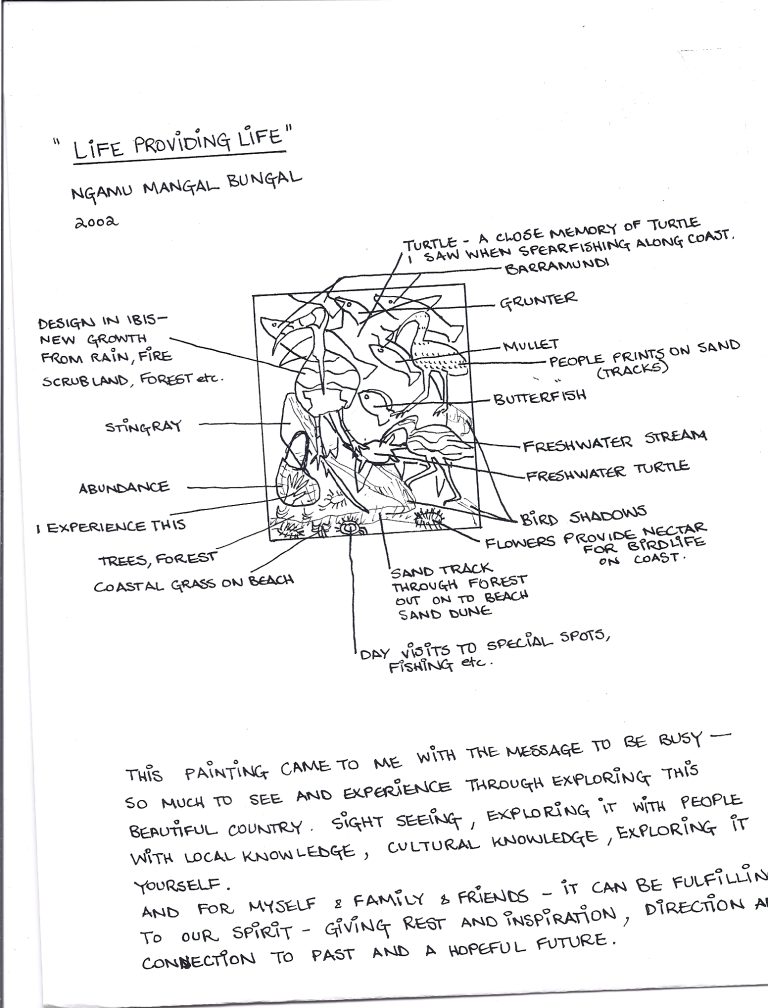 "LIFE PROVIDING LIFE"
NGAMU MANGAL BUNGAL
2002
TURTLE - A CLOSE MEMORY OF TURTLE
I SAW WHEN SPEARFISHING ALONG COAST.
BARRAMUNDI
GRUNTER
MULLET
PEOPLE PRINTS ON SAND
(TRACKS)
BUTTERFISH
FRESHWATER STREAM
FRESHWATER TURTLE
BIRD SHADOWS
FLOWERS PROVIDE NECTAR
FOR BIRDLIFE
ON COAST.
DESIGN IN IBIS-
NEW GROWTH
FROM RAIN, FIRE
SCRUB LAND, FOREST etc.
STINGRAY
ABUNDANCE
I EXPERIENCE THIS
TREES, FOREST
COASTAL GRASS ON BEACH
SAND TRACK
THROUGH FOREST
OUT ON TO BEACH
SAND DUNE
DAY VISITS TO SPECIAL SPOTS,
FISHING etc.
THIS PAINTING CAME TO ME WITH THE MESSAGE TO BE BUSY —
SO MUCH TO SEE AND EXPERIENCE THROUGH EXPLORING THIS
BEAUTIFUL COUNTRY. SIGHT SEEING, EXPLORING IT WITH PEOPLE
WITH LOCAL KNOWLEDGE, CULTURAL KNOWLEDGE, EXPLORING IT
YOURSELF.
AND FOR MYSELF & FAMILY & FRIENDS - IT CAN BE FULFILLIN
TO OUR SPIRIT - GIVING REST AND INSPIRATION, DIRECTION A
CONNECTION TO PAST AND A HOPEFUL FUTURE.